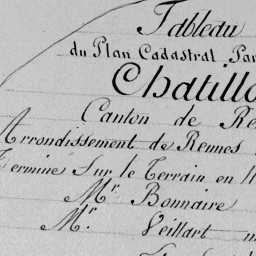 Tableau
du Plan Cadastral Par
Chatillo
Canton de Re
Arrondissement de Rennes
Terminé Sur le Terrain en 1
Mr. Bonnaire
Mr. Veillart